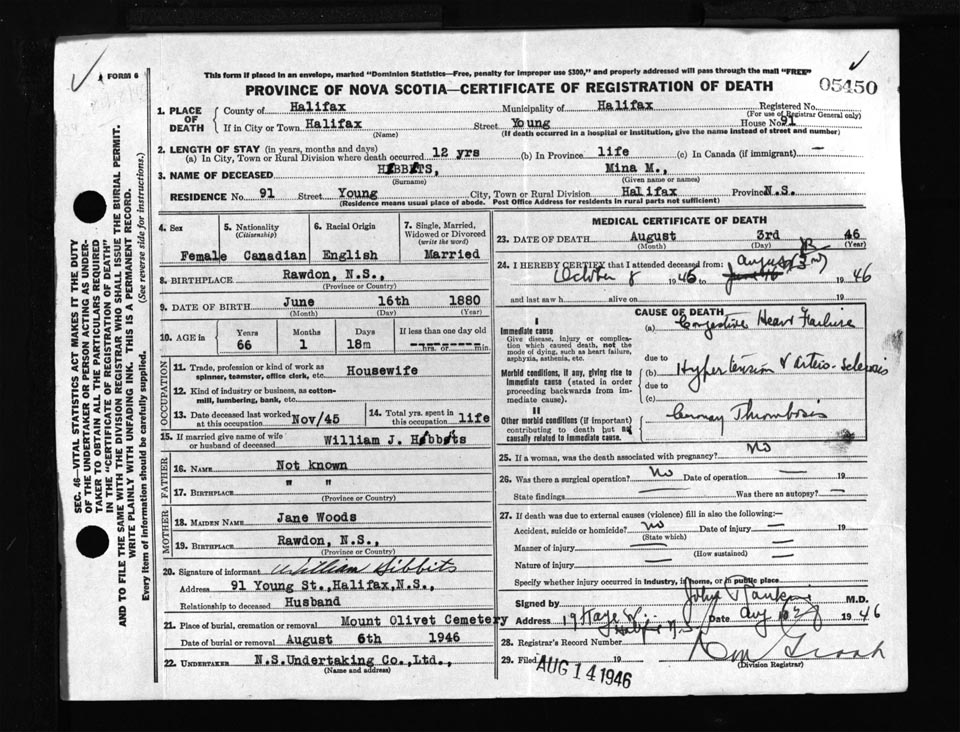 FORM 6
This form if placed in an envelope, marked "Dominion Statistics—Free, penalty for improper use $300," and properly addressed will pass through the mail "FREE"
PROVINCE OF NOVA SCOTIA—CERTIFICATE OF REGISTRATION OF DEATH
05450
1. PLACE OF DEATH
County of Halifax Municipality of Halifax Registered No.
(For use of Registrar General only)
If in City or Town Halifax Street Young House No. 91
(Name) (If death occurred in a hospital or institution, give the name instead of street and number)
2. LENGTH OF STAY (in years, months and days)
(a) In City, Town or Rural Division where death occurred 12 yrs (b) In Province life (c) In Canada (if immigrant) —
3. NAME OF DECEASED HIBBITS, Mina M.,
(Surname) (Given name or names)
RESIDENCE No. 91 Street Young City, Town or Rural Division Halifax Province N.S.
(Residence means usual place of abode. Post Office Address for residents in rural parts not sufficient)
4. Sex 5. Nationality (Citizenship) 6. Racial Origin 7. Single, Married, Widowed or Divorced (write the word)
Female Canadian English Married
8. BIRTHPLACE Rawdon, N.S.,
(Province or Country)
9. DATE OF BIRTH June 16th 1880
(Month) (Day) (Year)
10. AGE in Years Months Days If less than one day old
66 1 18m -------- hrs. or min.
OCCUPATION
11. Trade, profession or kind of work as spinner, teamster, office clerk, etc. Housewife
12. Kind of industry or business, as cotton-mill, lumbering, bank, etc.
13. Date deceased last worked at this occupation Nov/45 14. Total yrs. spent in this occupation life
15. If married give name of wife or husband of deceased William J. Hibbits
FATHER
16. NAME Not known
17. BIRTHPLACE " "
(Province or Country)
MOTHER
18. MAIDEN NAME Jane Woods
19. BIRTHPLACE Rawdon, N.S.,
(Province or Country)
20. Signature of informant William Hibbits
Address 91 Young St.,Halifax,N.S.,
Relationship to deceased Husband
21. Place of burial, cremation or removal Mount Olivet Cemetery
Date of burial or removal August 6th 1946
22. UNDERTAKER N.S.Undertaking Co.,Ltd.,
(Name and address)
MEDICAL CERTIFICATE OF DEATH
23. DATE OF DEATH August 3rd 46
(Month) (Day) (Year)
24. I HEREBY CERTIFY that I attended deceased from:
October 8 1945 to August 1946
and last saw h alive on 19
CAUSE OF DEATH
I
Immediate cause
Give disease, injury or complication which caused death, not the mode of dying, such as heart failure, asphyxia, asthenia, etc.
(a) Congestive Heart Failure
due to
Morbid conditions, if any, giving rise to immediate cause (stated in order proceeding backwards from immediate cause).
(b) Hypertension & Arterio-Sclerosis
due to
(c)
II
Other morbid conditions (if important) contributing to death but not causally related to immediate cause.
Thrombosis
25. If a woman, was the death associated with pregnancy? No
26. Was there a surgical operation? No Date of operation — 19
State findings — Was there an autopsy? —
27. If death was due to external causes (violence) fill in also the following:—
Accident, suicide or homicide? No Date of injury — 19
(State which)
Manner of injury — (How sustained) —
Nature of injury —
Specify whether injury occurred in industry, in home, or in public place
Signed by John Rankine M.D.
Address Halifax N.S. Date Aug 1946
28. Registrar's Record Number
29. Filed AUG 14 1946 19
(Division Registrar)
SEC. 46—VITAL STATISTICS ACT MAKES IT THE DUTY
OF THE UNDERTAKER OR PERSON ACTING AS UNDERTAKER TO OBTAIN ALL THE PARTICULARS REQUIRED
IN THE "CERTIFICATE OF REGISTRATION OF DEATH"
AND TO FILE THE SAME WITH THE DIVISION REGISTRAR WHO SHALL ISSUE THE BURIAL PERMIT.
WRITE PLAINLY WITH UNFADING INK. THIS IS A PERMANENT RECORD.
Every item of information should be carefully supplied. (See reverse side for instructions.)